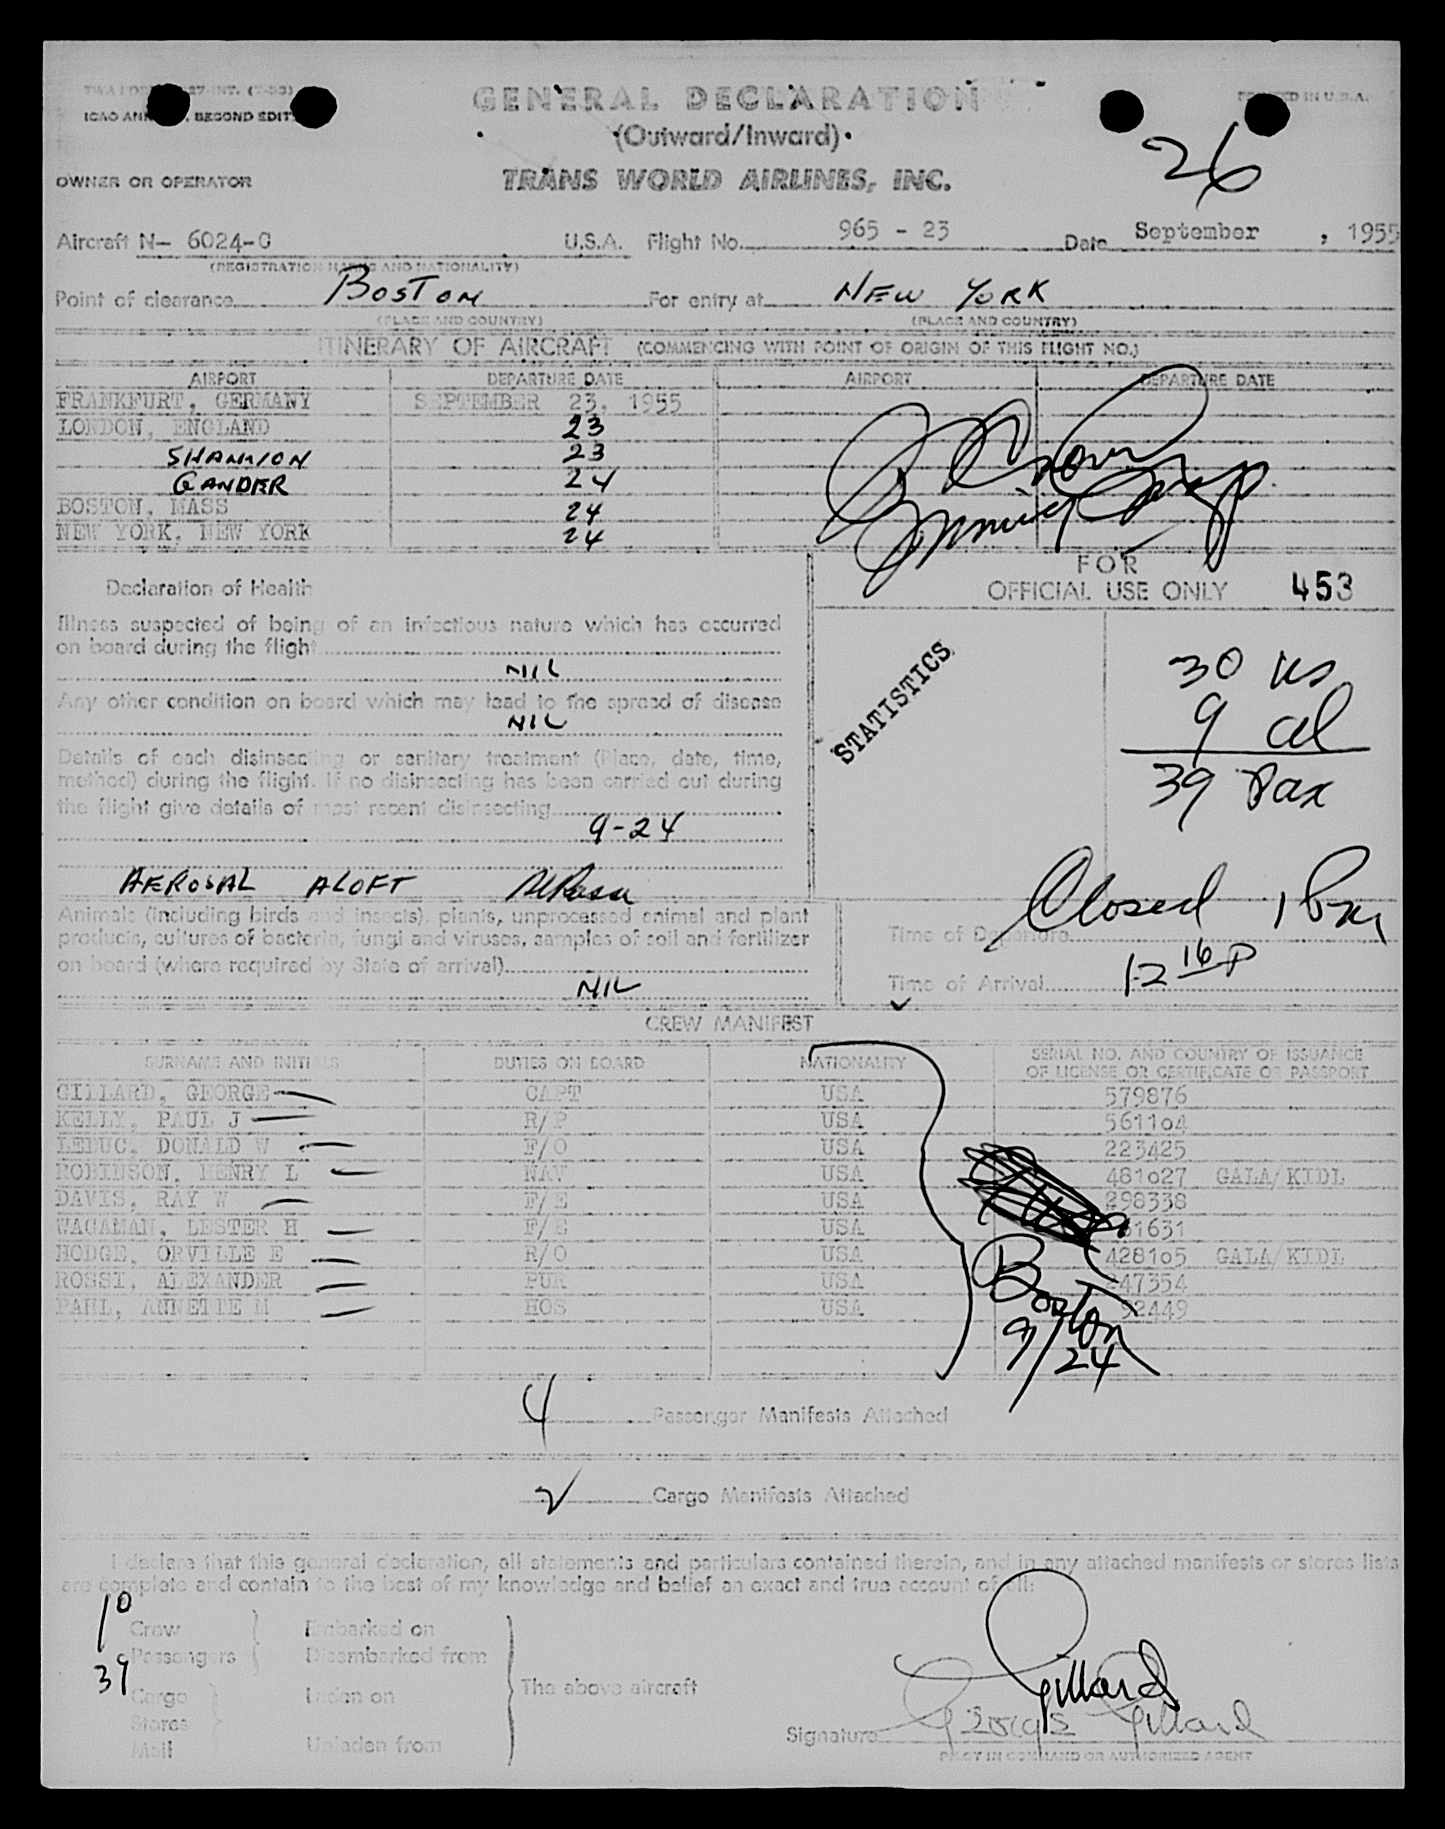 GENERAL DECLARATION
PRINTED IN U.S.A.
(Outward/Inward)
26
OWNER OR OPERATOR TRANS WORLD AIRLINES, INC.
Aircraft N- 6024-C U.S.A. Flight No. 965 - 23 Date September , 1955
(REGISTRATION MARKS AND NATIONALITY)
Point of clearance BOSTON For entry at NEW YORK
(PLACE AND COUNTRY) (PLACE AND COUNTRY)
ITINERARY OF AIRCRAFT (COMMENCING WITH POINT OF ORIGIN OF THIS FLIGHT NO.)
AIRPORT DEPARTURE DATE AIRPORT DEPARTURE DATE
FRANKFURT, GERMANY SEPTEMBER 23, 1955
LONDON, ENGLAND 23
SHANNON 23
GANDER 24
BOSTON, MASS 24
NEW YORK, NEW YORK 24
FOR
OFFICIAL USE ONLY 453
Declaration of Health
Illness suspected of being of an infectious nature which has occurred
on board during the flight
NIL
Any other condition on board which may lead to the spread of disease
NIL
Details of each disinsecting or sanitary treatment (Place, date, time,
method) during the flight. If no disinsecting has been carried out during
the flight give details of most recent disinsecting
9-24
AEROSAL ALOFT
STATISTICS
30 US
9 al
39 Pax
Animals (including birds and insects), plants, unprocessed animal and plant
products, cultures of bacteria, fungi and viruses, samples of soil and fertilizer
on board (where required by State of arrival)
NIL
Closed 1 Pm
Time of Departure
Time of Arrival 12 16 P
CREW MANIFEST
SURNAME AND INITIALS DUTIES ON BOARD NATIONALITY SERIAL NO. AND COUNTRY OF ISSUANCE
OF LICENSE OR CERTIFICATE OR PASSPORT
GILLARD, GEORGE CAPT USA 579876
KELLY, PAUL J R/P USA 561104
LEDUC, DONALD W F/O USA 223425
ROBINSON, HENRY L NAV USA 481027 GALA/KIDL
DAVIS, RAY W F/E USA 298338
WAGAMAN, LESTER H F/E USA 1631
HODGE, ORVILLE E R/O USA 428105 GALA/KIDL
ROSSI, ALEXANDER PUR USA 47354
PAHL, ANNETTE M HOS USA 92449
Boston
9/24
4 Passenger Manifests Attached
2 Cargo Manifests Attached
I declare that this general declaration, all statements and particulars contained therein, and in any attached manifests or stores lists
are complete and contain to the best of my knowledge and belief an exact and true account of all:
10 Crew Embarked on
39 Passengers Disembarked from
Cargo Laden on The above aircraft
Stores
Mail Unladen from
Gillard
Signature George Gillard
PILOT IN COMMAND OR AUTHORIZED AGENT